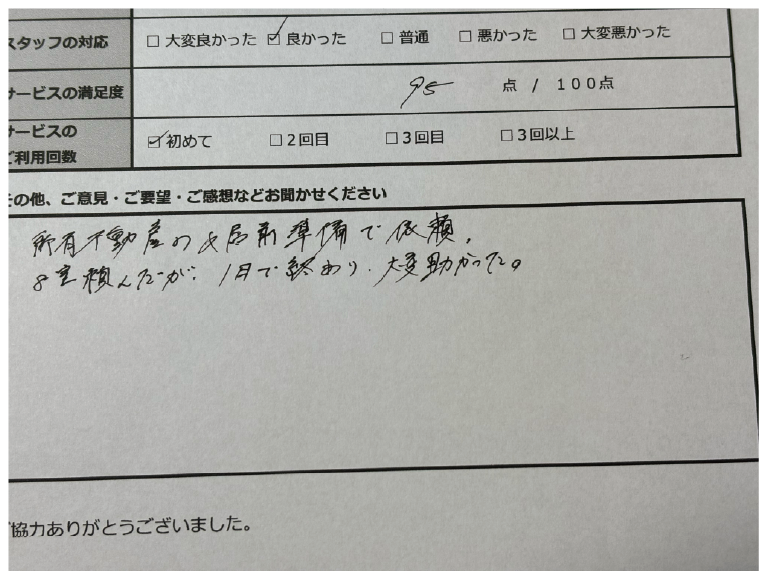 スタッフの対応 □ 大変良かった ☑ 良かった □ 普通 □ 悪かった □ 大変悪かった
サービスの満足度 95 点 / 100点
サービスの
ご利用回数 ☑ 初めて □ 2回目 □ 3回目 □ 3回以上
その他、ご意見・ご要望・ご感想などお聞かせください
所有不動産の入居前準備で依頼。
8室頼んだが、1日で終わり、大変助かった。
ご協力ありがとうございました。